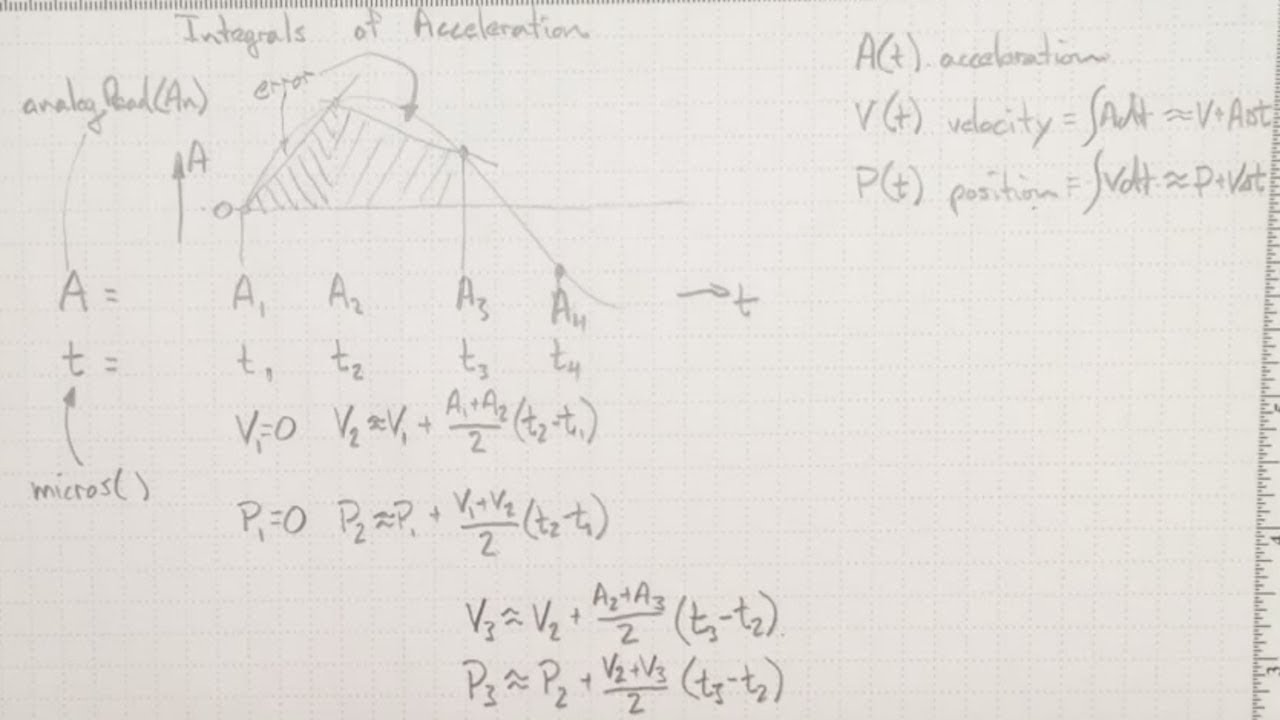 Integrals of Acceleration
error
analogRead(An)
A
0
A = A₁ A₂ A₃ A₄ → t
t = t₁ t₂ t₃ t₄
V₁=0 V₂≈V₁ + (A₁+A₂)/2 (t₂-t₁)
micros()
P₁=0 P₂≈P₁ + (V₁+V₂)/2 (t₂-t₁)
V₃ ≈ V₂ + (A₂+A₃)/2 (t₃-t₂)
P₃ ≈ P₂ + (V₂+V₃)/2 (t₃-t₂)
A(t) acceleration
V(t) velocity = ∫Adt ≈ V+AΔt
P(t) position = ∫Vdt ≈ P+VΔt
4
3